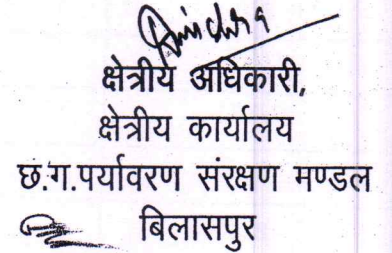 क्षेत्रीय अधिकारी,
क्षेत्रीय कार्यालय
छ.ग.पर्यावरण संरक्षण मण्डल
बिलासपुर